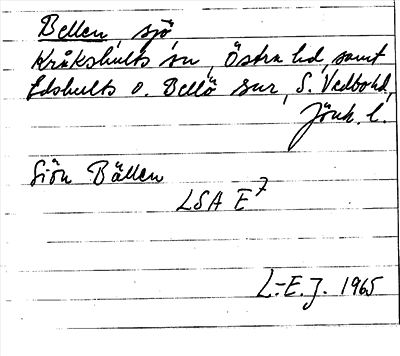 Bellen, sjö,
Kråkshults sn, Östra hd, samt
Edshults o. Bellö snr, S. Vedbo hd,
Jönk. l.
Siön Bällen
LSA E7
L.-E.J. 1965